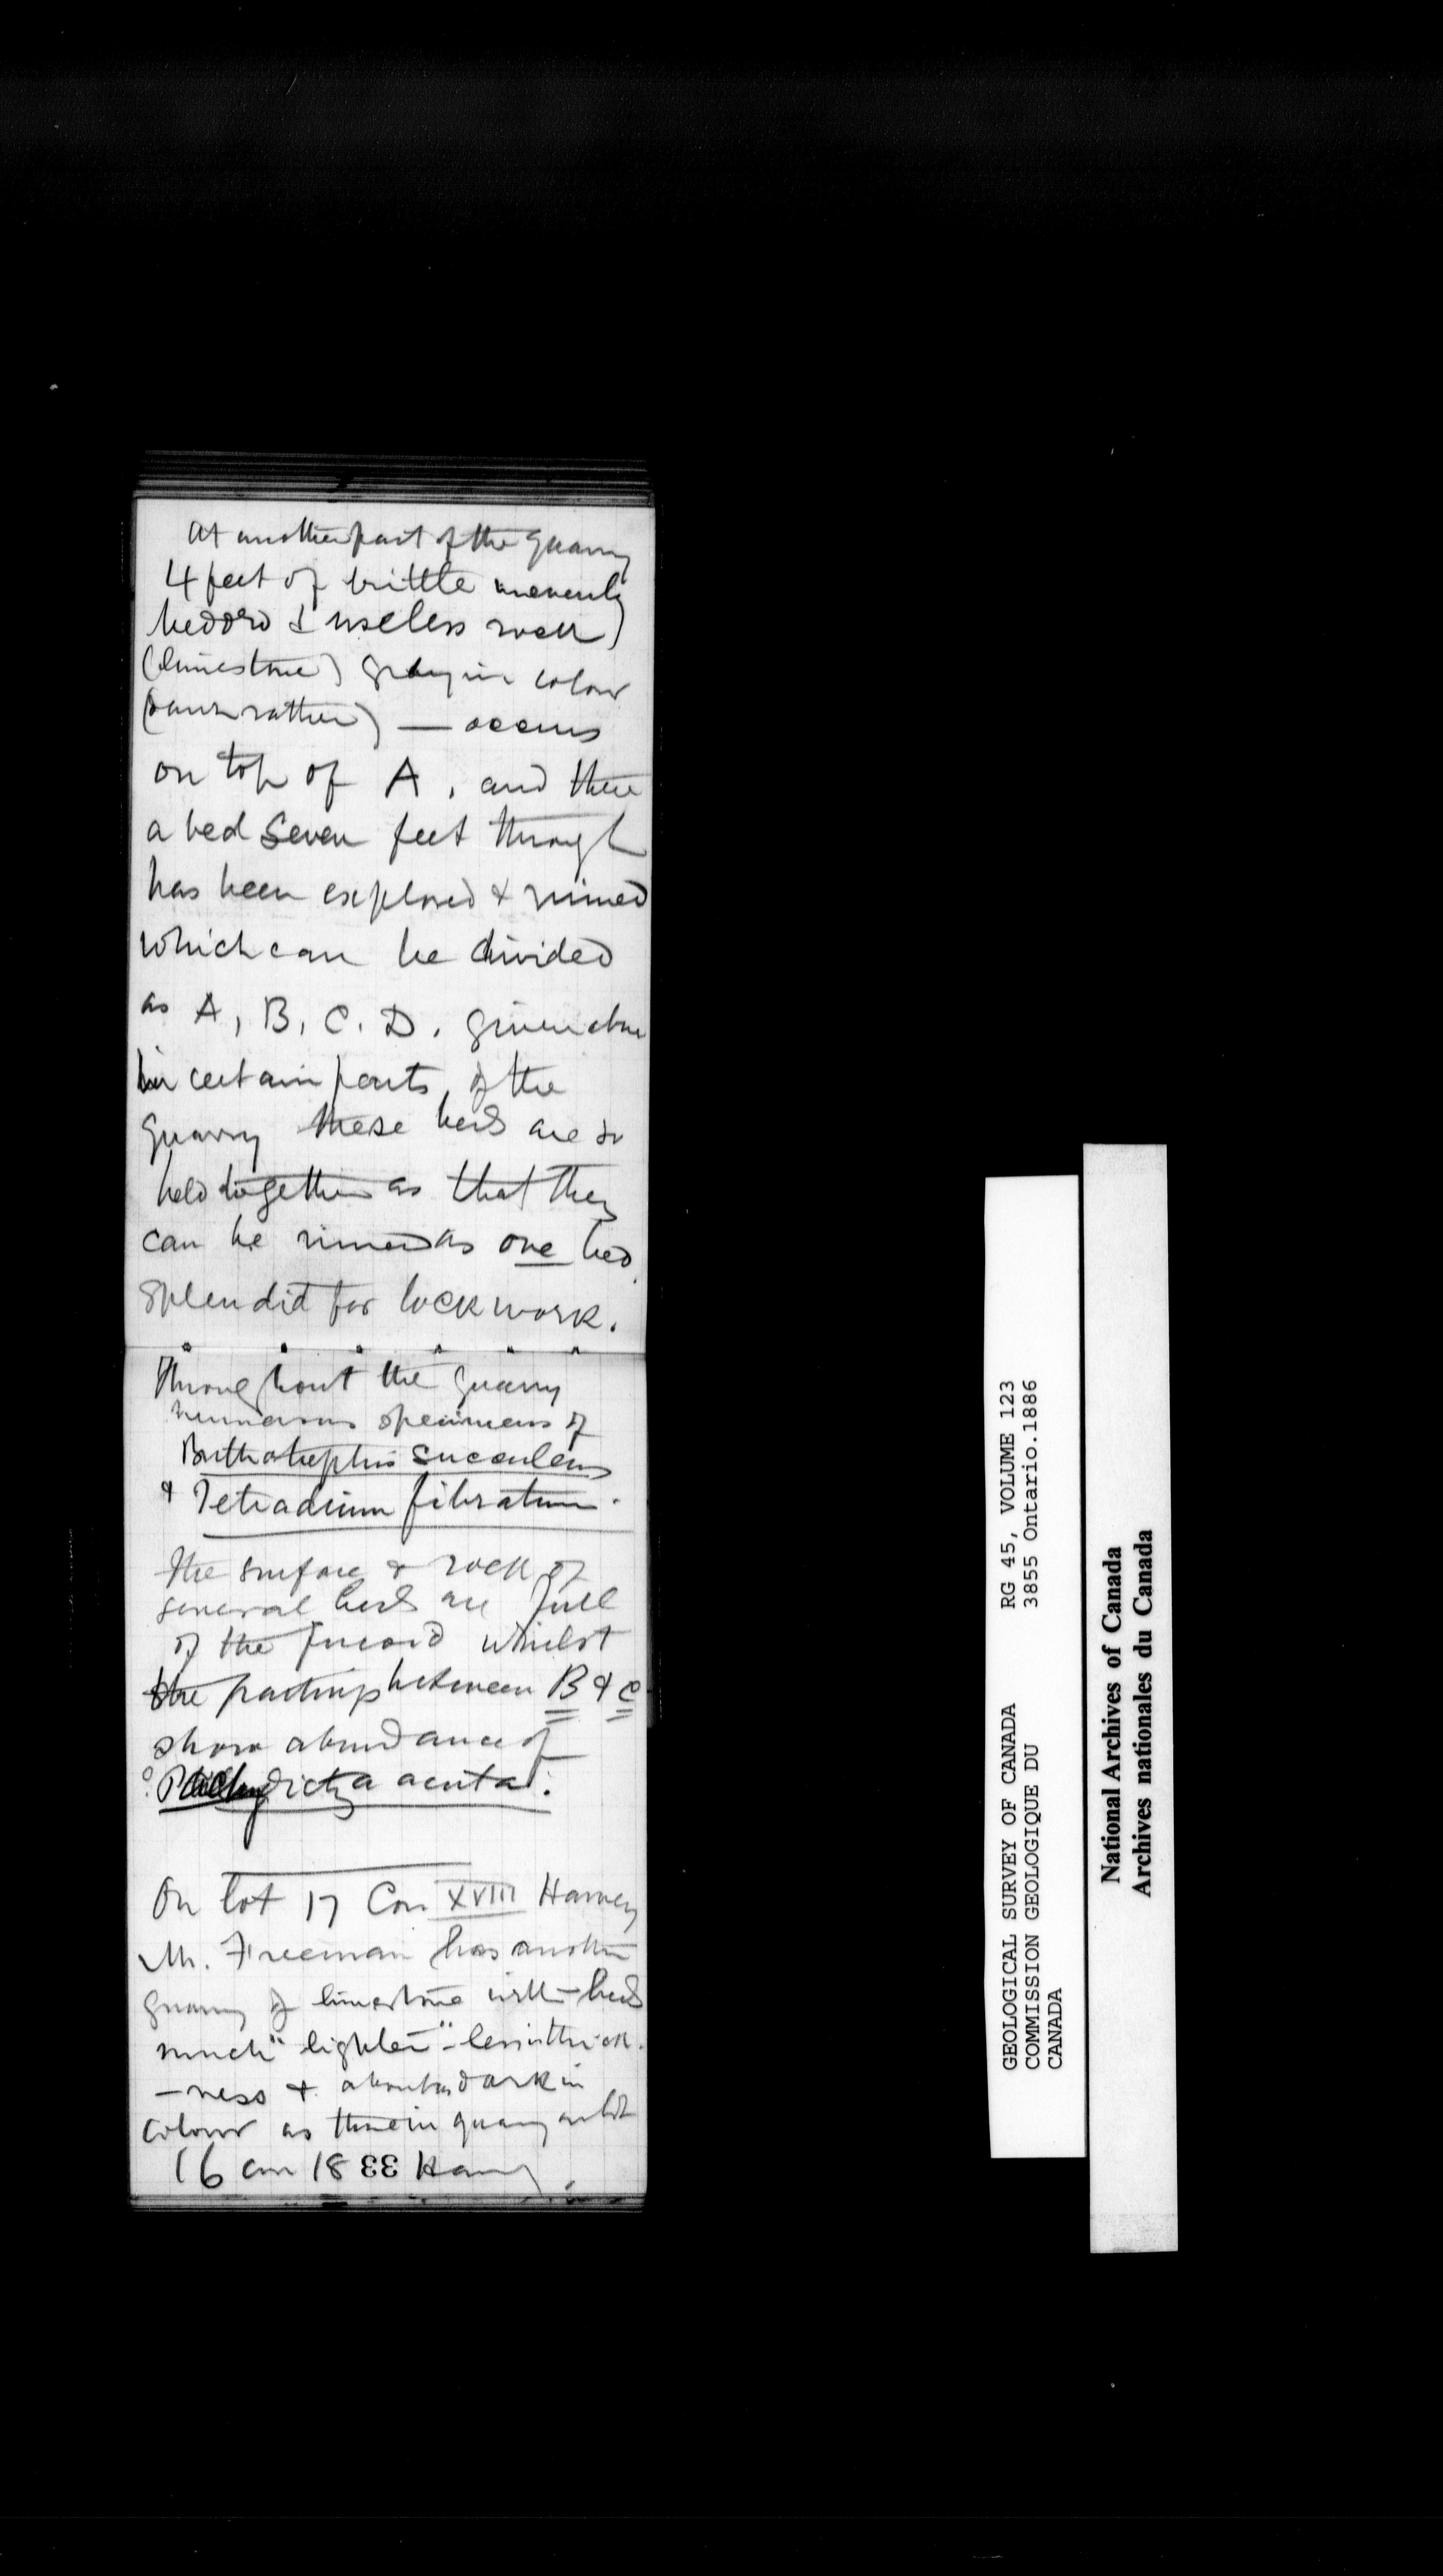 At another part of the quarry
4 feet of brittle unevenly
bedded & useless rock
(limestone) grey in colour
(dark rather) — occurs
on top of A, and there
a bed seven feet through
has been explored & mined
which can be divided
as A, B, C. D. given above
in certain parts of the
quarry these beds are so
held together as that they
can be mined as one bed
splendid for lock work.
Throughout the quarry
numerous specimens of
Buthotrephis succulens
& Tetradium fibratum.
The surface & rock of
several beds are full
of the fucoid whilst
the partings between B & C
show abundance of
? Pachydictya acuta.
On lot 17 Con XVIII Harvey
Mr. Freeman has another
quarry of limestone with beds
much "lighter" - less in thick-
-ness & about as dark in
colour as those in quarry on lot
16 con 18 33 Harvey.
GEOLOGICAL SURVEY OF CANADA
COMMISSION GEOLOGIQUE DU
CANADA
RG 45, VOLUME 123
3855 Ontario.1886
National Archives of Canada
Archives nationales du Canada